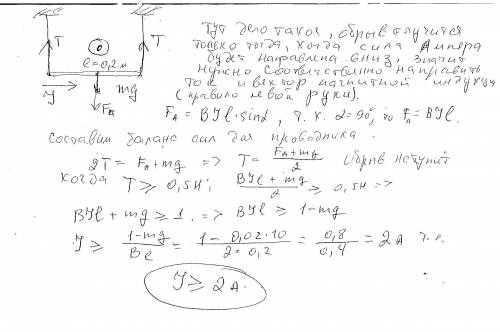 T T
l = 0,2 м
I mg
Fа
Тут дело такое, обрыв случится
только тогда, когда сила Ампера
будет направлена вниз, значит
нужно соответственно направить
ток и вектор магнитной индукции
(правило левой руки).
Fа = BIl·sinα, т.к. α=90°, то Fа = BIl.
Составим баланс сил для проводника.
2T = Fа + mg => T = (Fа + mg)/2 обрыв наступит
когда T ≥ 0,5Н; (BIl + mg)/2 ≥ 0,5Н =>
BIl + mg ≥ 1. => BIl ≥ 1 - mg
I ≥ (1-mg)/(Bl) = (1 - 0,02·10)/(2·0,2) = 0,8/0,4 = 2А т.е.
I ≥ 2А.